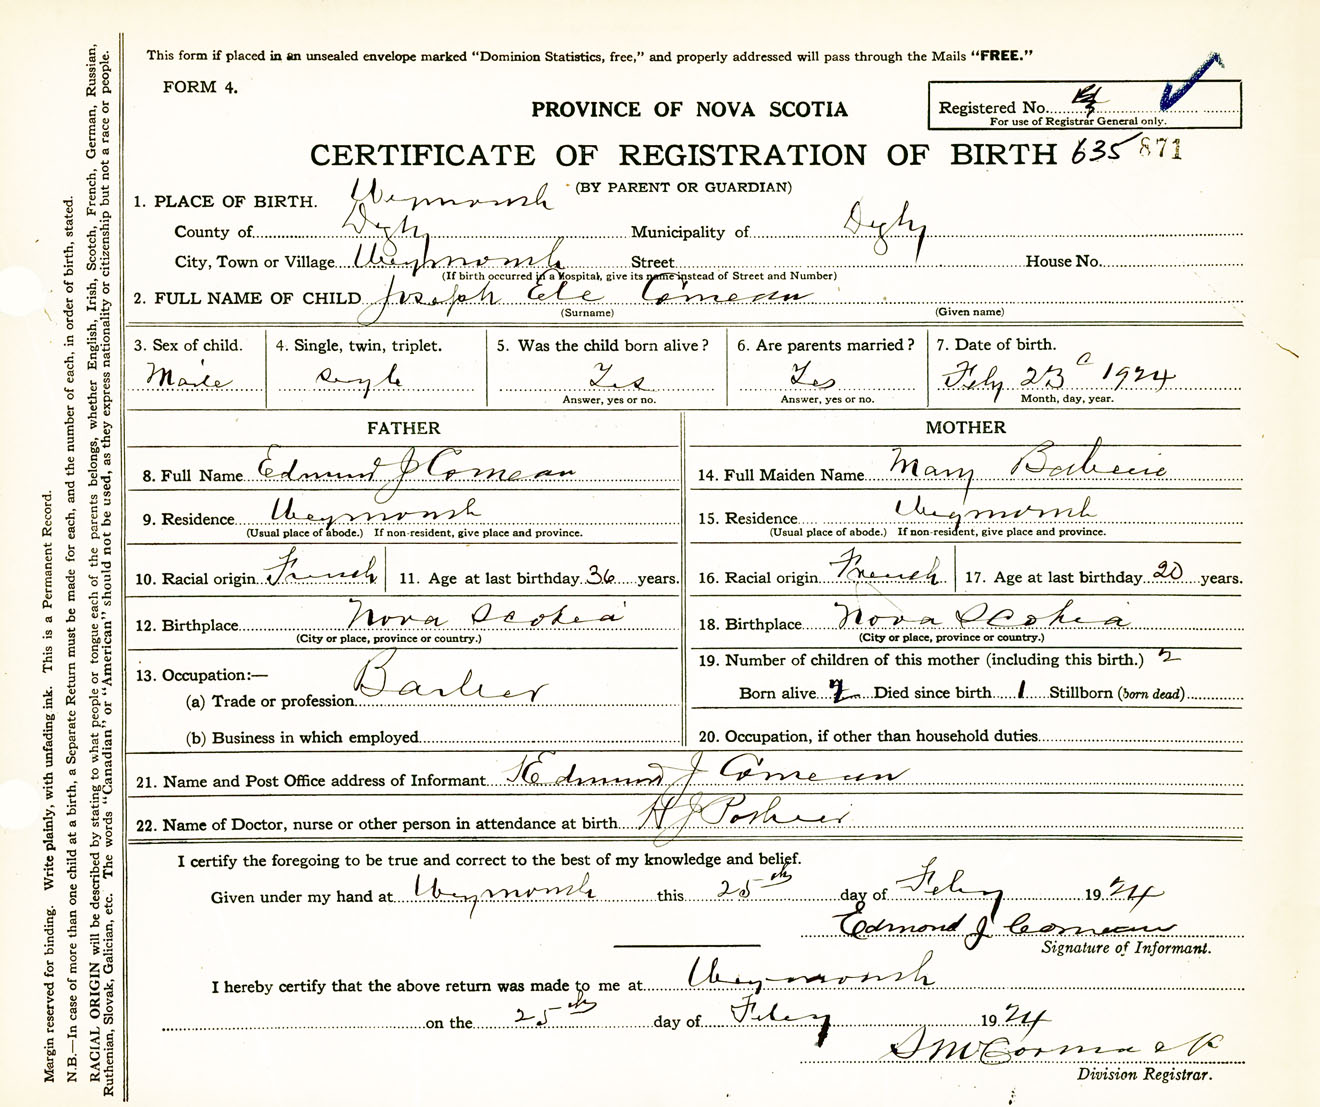 This form if placed in an unsealed envelope marked "Dominion Statistics, free," and properly addressed will pass through the Mails "FREE."
FORM 4.
PROVINCE OF NOVA SCOTIA
Registered No.
For use of Registrar General only.
CERTIFICATE OF REGISTRATION OF BIRTH 635 871
(BY PARENT OR GUARDIAN)
1. PLACE OF BIRTH. Weymouth
County of Digby Municipality of Digby
City, Town or Village Weymouth Street House No.
(If birth occurred in a Hospital, give its name instead of Street and Number)
2. FULL NAME OF CHILD Joseph Ele Comeau
(Surname) (Given name)
3. Sex of child. 4. Single, twin, triplet. 5. Was the child born alive? 6. Are parents married? 7. Date of birth.
Male Single Yes Yes Feby 23 1924
Answer, yes or no. Answer, yes or no. Month, day, year.
FATHER MOTHER
8. Full Name Edmund J Comeau 14. Full Maiden Name Mary
9. Residence Weymouth 15. Residence Weymouth
(Usual place of abode.) If non-resident, give place and province. (Usual place of abode.) If non-resident, give place and province.
10. Racial origin French 11. Age at last birthday 36 years. 16. Racial origin French 17. Age at last birthday 20 years.
12. Birthplace Nova Scotia 18. Birthplace Nova Scotia
(City or place, province or country.) (City or place, province or country.)
13. Occupation:— 19. Number of children of this mother (including this birth.) 2
(a) Trade or profession Barber Born alive 2 Died since birth 1 Stillborn (born dead)
(b) Business in which employed 20. Occupation, if other than household duties
21. Name and Post Office address of Informant Edmund J Comeau
22. Name of Doctor, nurse or other person in attendance at birth H J
I certify the foregoing to be true and correct to the best of my knowledge and belief.
Given under my hand at Weymouth this 25th day of Feby 1924
Edmond J Comeau
Signature of Informant.
I hereby certify that the above return was made to me at Weymouth
on the 25th day of Feby 1924
S McCormack
Division Registrar.
Margin reserved for binding. Write plainly, with unfading ink. This is a Permanent Record.
N.B.—In case of more than one child at a birth, a Separate Return must be made for each, and the number of each, in order of birth, stated.
RACIAL ORIGIN will be described by stating to what people or tongue each of the parents belongs, whether English, Irish, Scotch, French, German, Russian,
Ruthenian, Slovak, Galician, etc. The words "Canadian" or "American" should not be used, as they express nationality or citizenship but not a race or people.